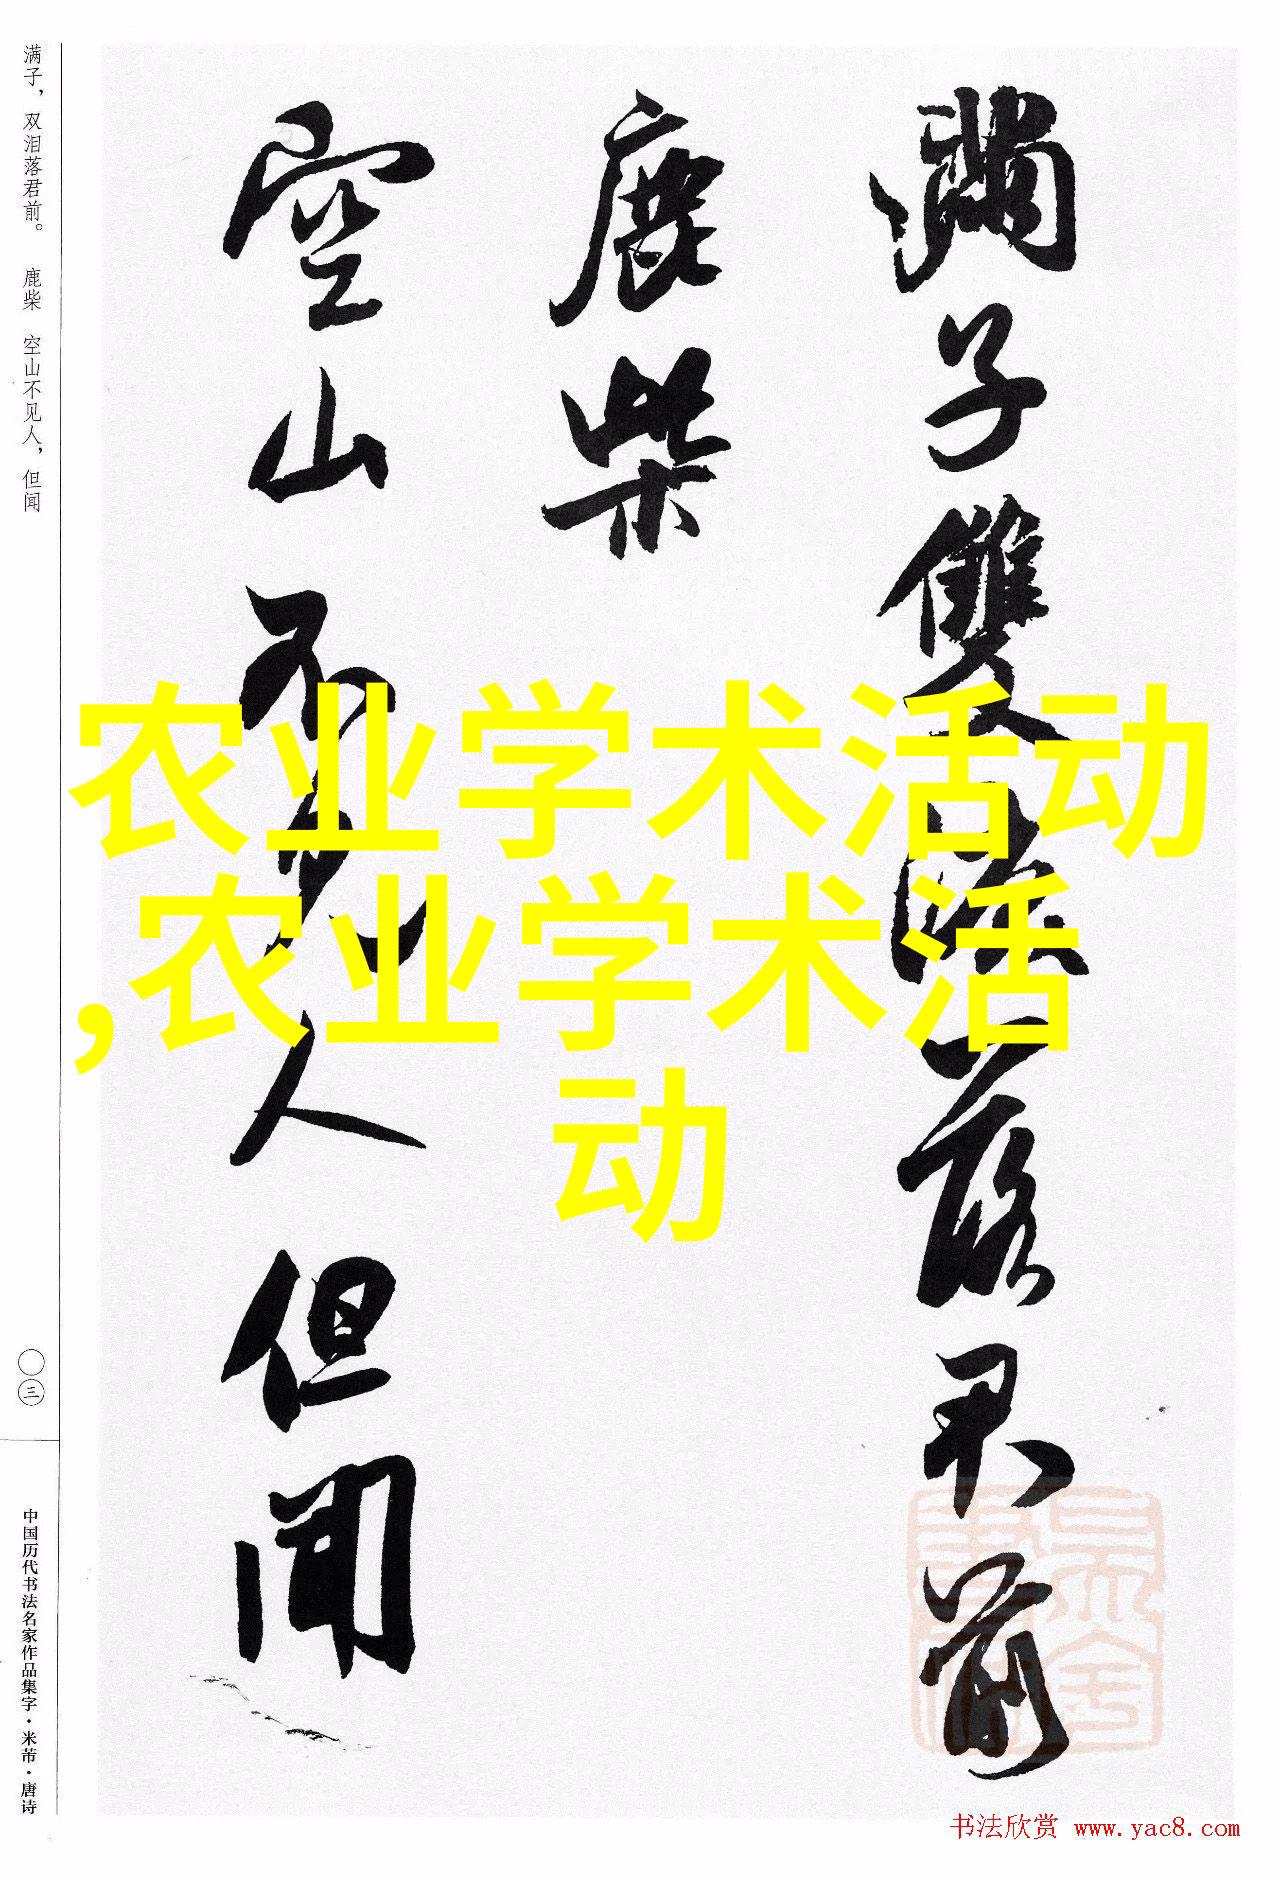 满子，双泪落君前。 鹿柴 空山不见人，但闻
〇三
中国历代书法名家作品集字·米芾·唐诗
满子雙淚落君前
鹿柴
空山不见人但闻
农业学术活动
,农业学术活
动
书法欣赏 www.yac8.com